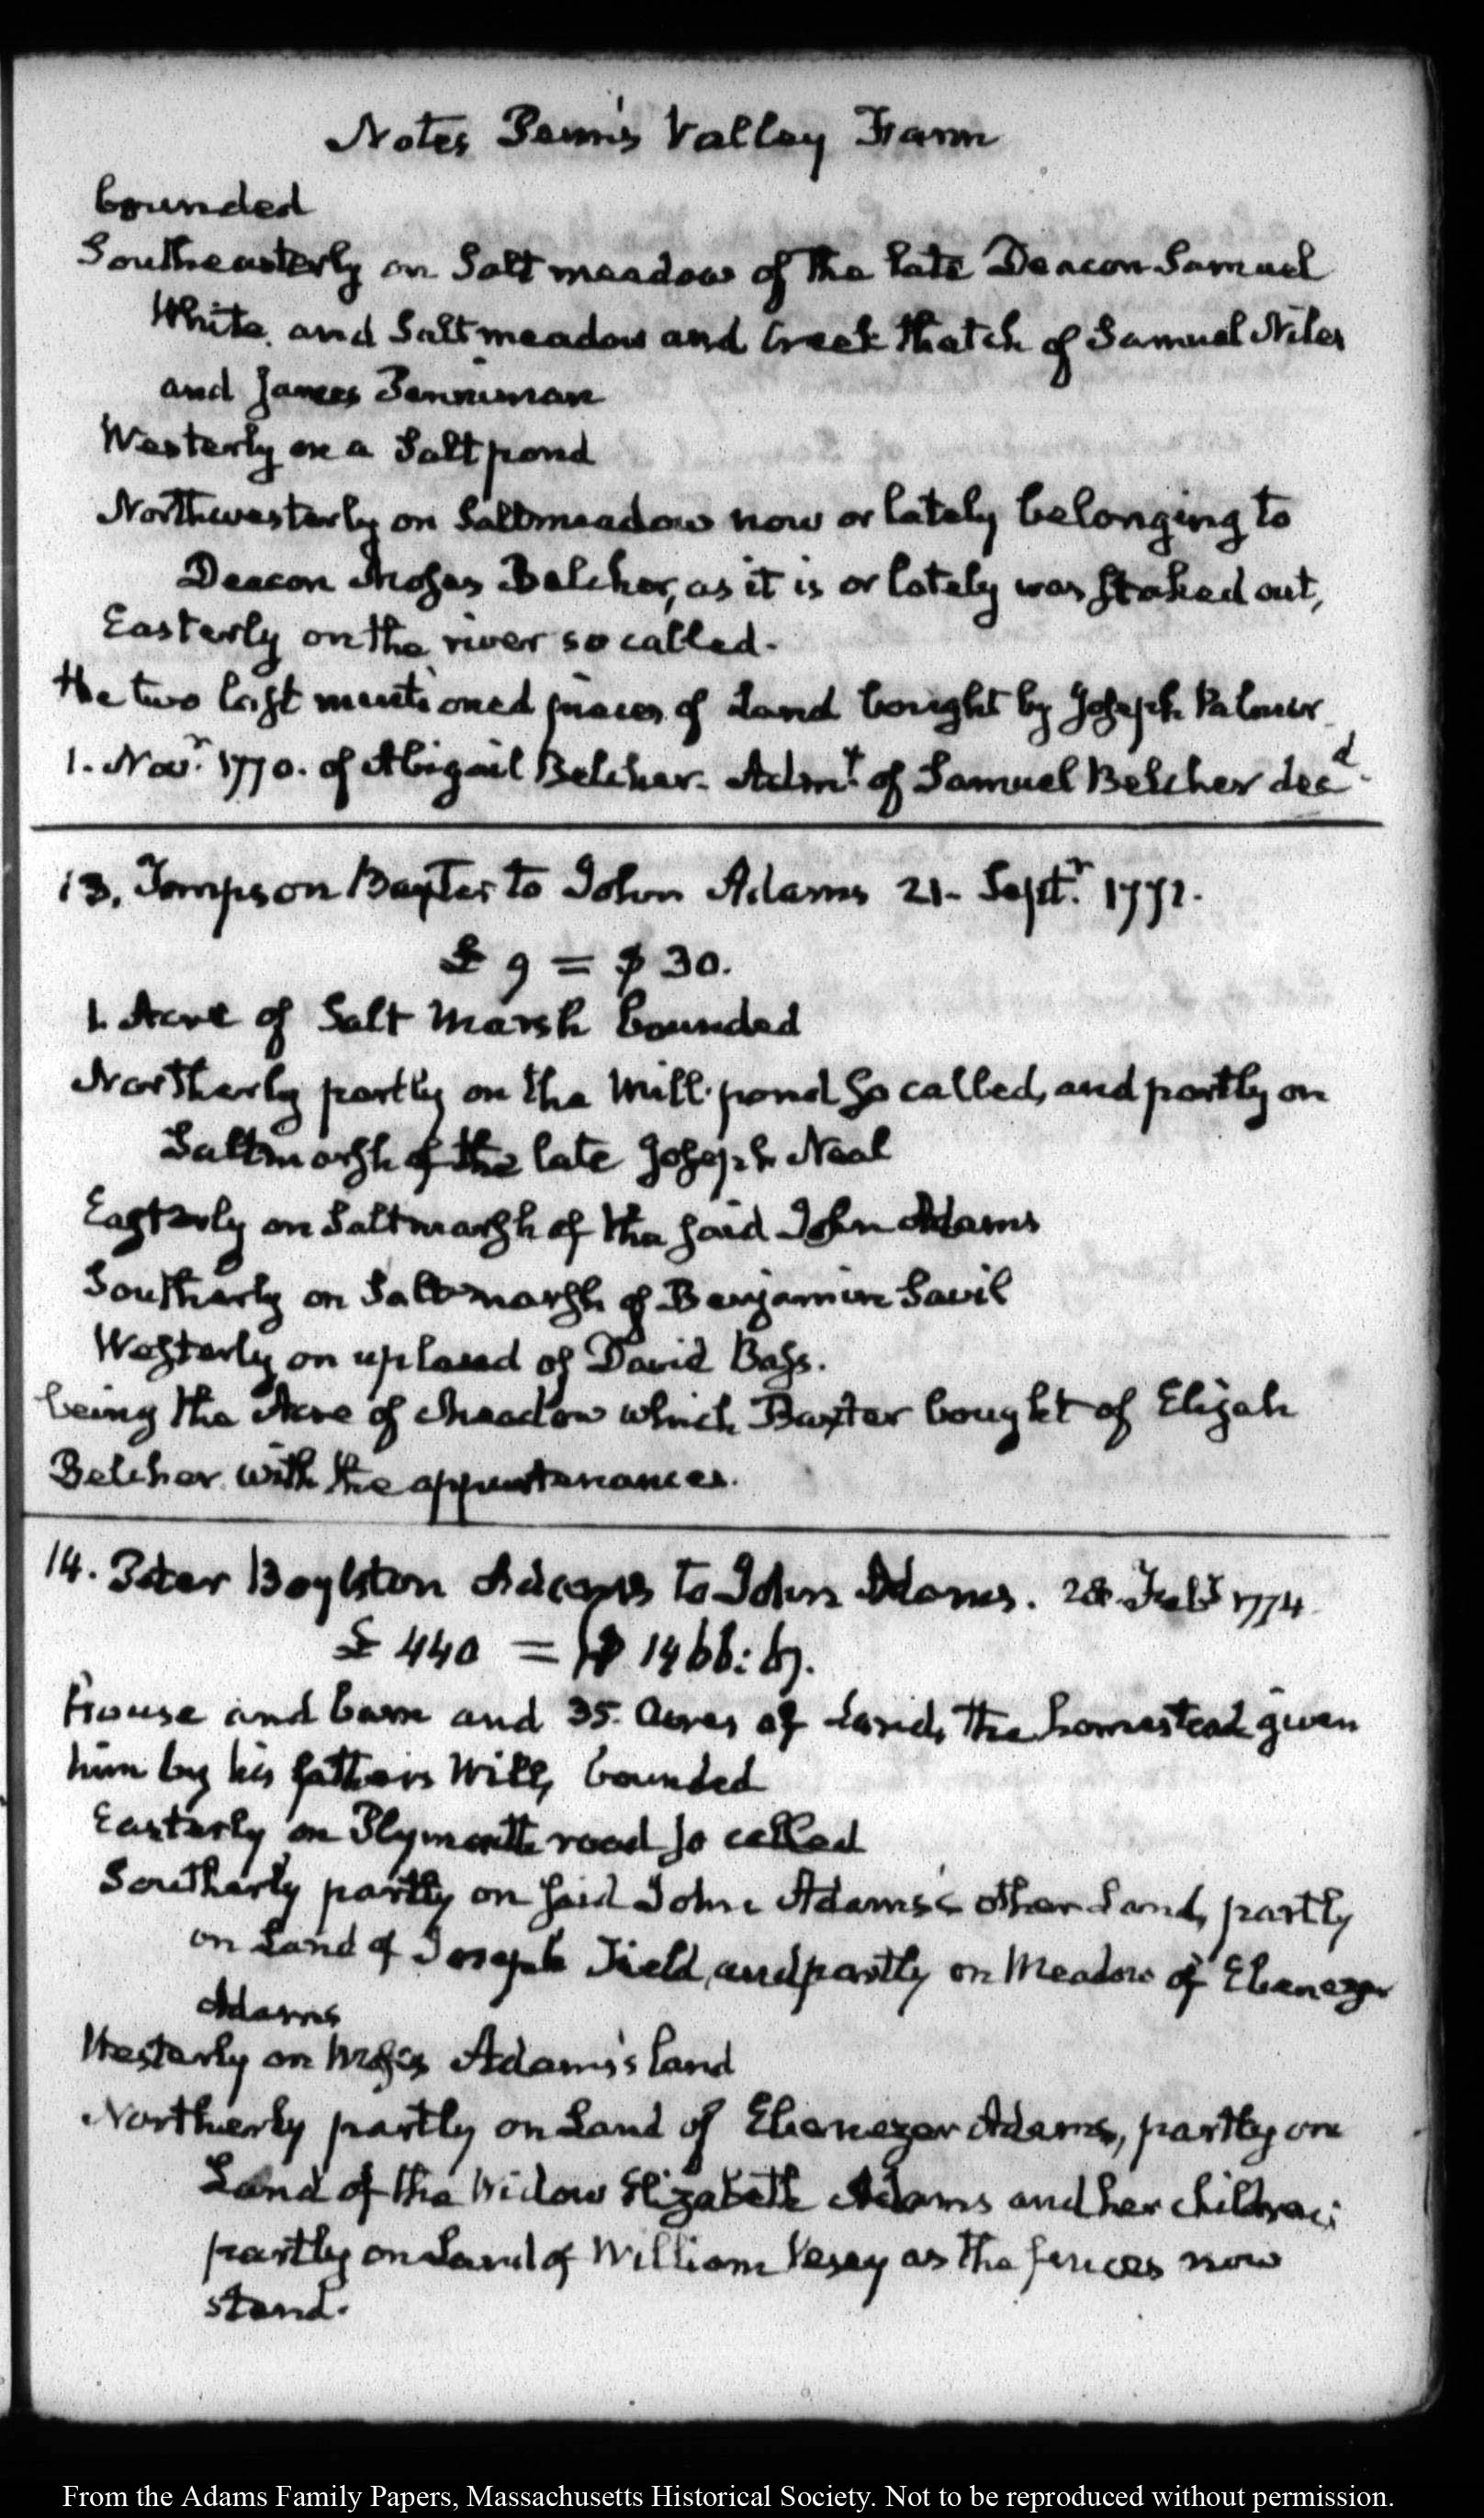 Notes Penn's Valley Farm
bounded
Southeasterly on Salt meadow of the late Deacon Samuel
White, and Salt meadow and Creek thatch of Samuel Niles
and James Penniman
Westerly on a Salt pond
Northwesterly on Saltmeadow now or lately belonging to
Deacon Moses Belcher, as it is or lately was staked out,
Easterly on the river so called.
the two last mentioned pieces of Land bought by Joseph Palmer
1. Novr. 1770. of Abigail Belcher. Admx of Samuel Belcher decd.
13. Tompson Baxter to John Adams 21. Septr. 1772.
£ 9 = $ 30.
1. Acre of Salt Marsh bounded
Northerly partly on the Mill pond so called, and partly on
Saltmarsh of the late Joseph Neal
Easterly on Saltmarsh of the said John Adams
Southerly on Saltmarsh of Benjamin Savil
Westerly on upland of David Bass.
being the Acre of Meadow which Baxter bought of Elijah
Belcher with the appurtenances.
14. Peter Boylston Adams to John Adams. 28 Feby 1774
£ 440 = $ 1466: 67.
House and barn and 35. Acres of Land, the homestead given
him by his fathers Will, bounded
Easterly on Plymouth road so called
Southerly partly on said John Adams's other Land, partly
on Land of Joseph Field, and partly on Meadow of Ebenezer
Adams
Westerly on Moses Adams's land
Northerly partly on Land of Ebenezer Adams, partly on
Land of the Widow Elizabeth Adams and her children;
partly on Land of William Vesey as the fences now
stand.
From the Adams Family Papers, Massachusetts Historical Society. Not to be reproduced without permission.